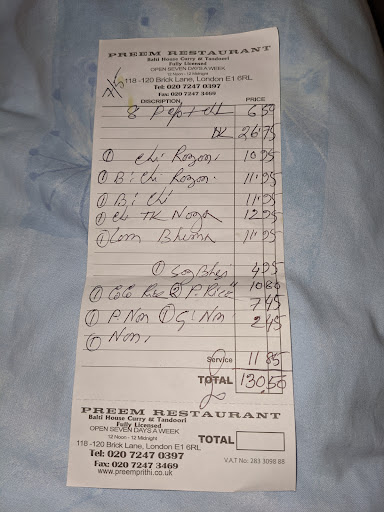 PREEM RESTAURANT
Balti House Curry & Tandoori
Fully Licensed
OPEN SEVEN DAYS A WEEK
12 Noon - 12 Midnight
118 -120 Brick Lane, London E1 6RL
Tel: 020 7247 0397
Fax: 020 7247 3469
DISCRIPTION PRICE
8 6.50
26.75
① Chi 10.95
① B. Chi 11.95
① B. Chi 11.95
① Ch TK 12.95
① Lam Bhuna 11.95
① Sag Bhaj 4.95
① CoCo Rice ② P. Rice 10.80
① P. Nan ① G. Nan 7.45
① Nan. 2.45
Service 11.85
TOTAL 130.50
PREEM RESTAURANT
Balti House Curry & Tandoori
Fully Licensed
OPEN SEVEN DAYS A WEEK
12 Noon - 12 Midnight
118 -120 Brick Lane, London E1 6RL
TOTAL
Tel: 020 7247 0397
Fax: 020 7247 3469
www.preemprithi.co.uk
V.A.T No: 283 3098 88